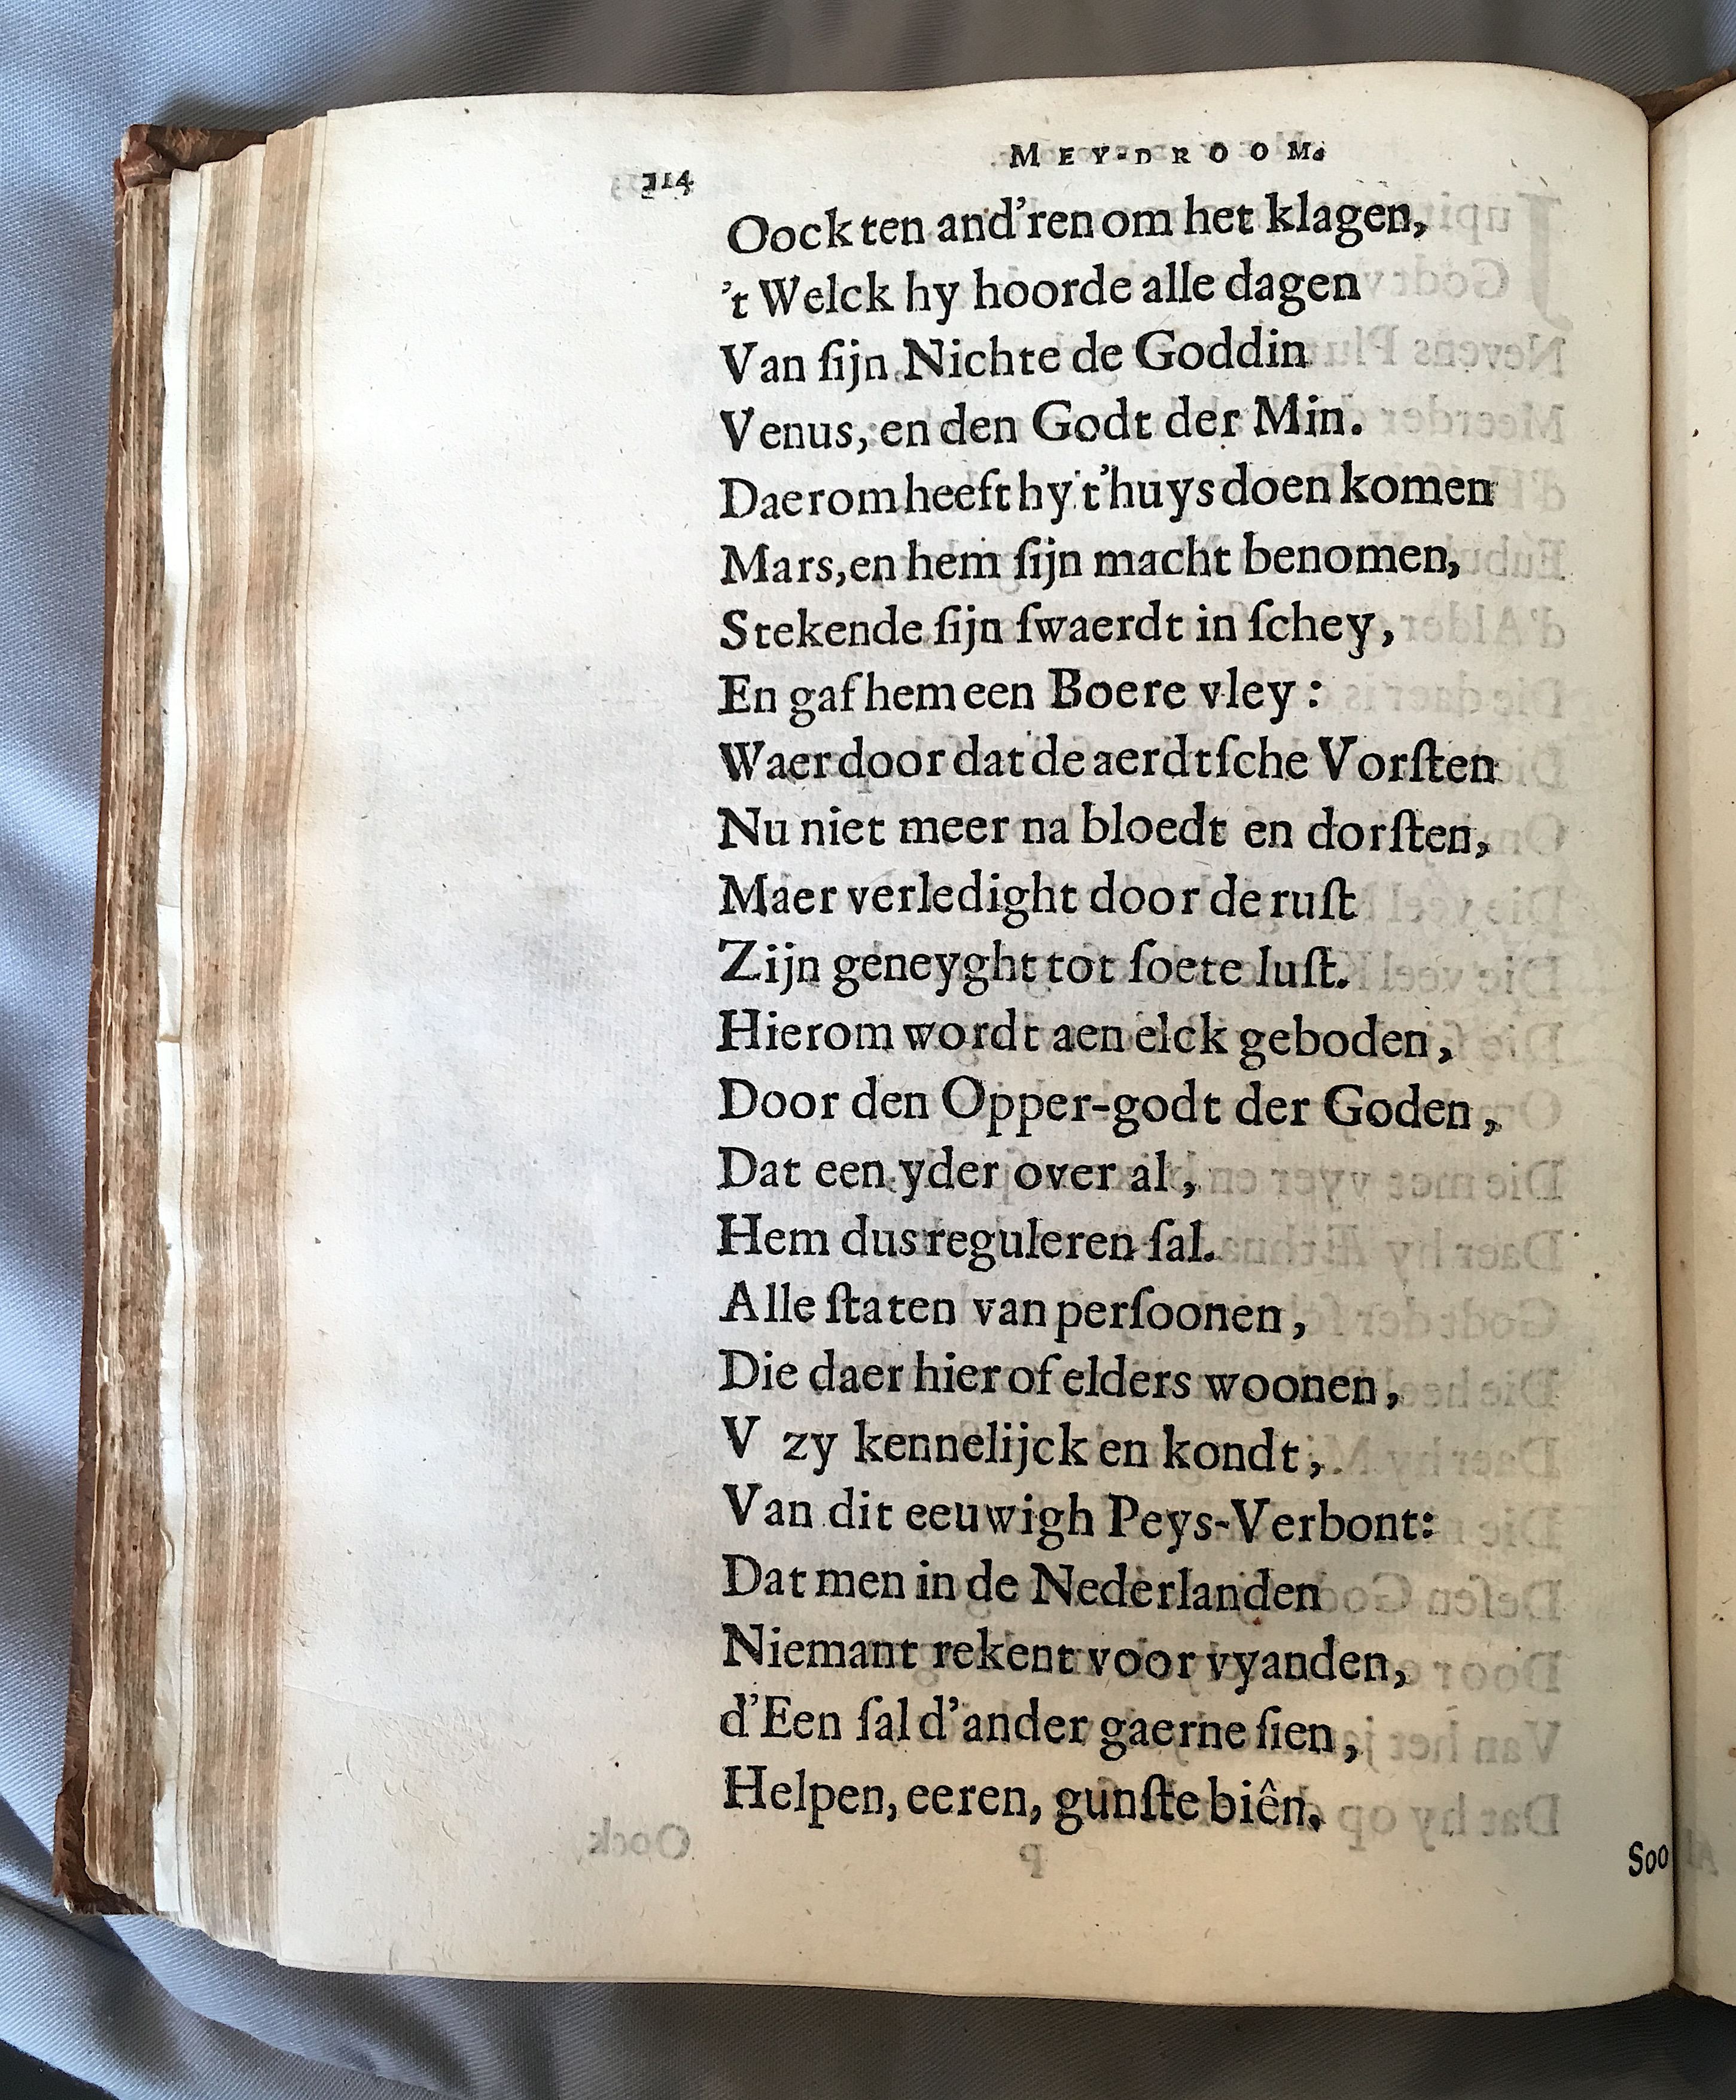 MEY-DROOM.
114
Oock ten and'ren om het klagen,
't Welck hy hoorde alle dagen
Van ſijn Nichte de Goddin
Venus, en den Godt der Min.
Daerom heeft hy t'huys doen komen
Mars, en hem ſijn macht benomen,
Stekende ſijn ſwaerdt in ſchey,
En gaf hem een Boere vley :
Waer door dat de aerdtſche Vorſten
Nu niet meer na bloedt en dorſten,
Maer verledight door de ruſt
Zijn geneyght tot ſoete luſt.
Hierom wordt aen elck geboden,
Door den Opper-godt der Goden,
Dat een yder over al,
Hem dus reguleren ſal.
Alle ſtaten van perſoonen,
Die daer hier of elders woonen,
V zy kennelijck en kondt,
Van dit eeuwigh Peys-Verbont:
Dat men in de Nederlanden
Niemant rekent voor vyanden,
d'Een ſal d'ander gaerne ſien,
Helpen, eeren, gunſte biên.
Soo